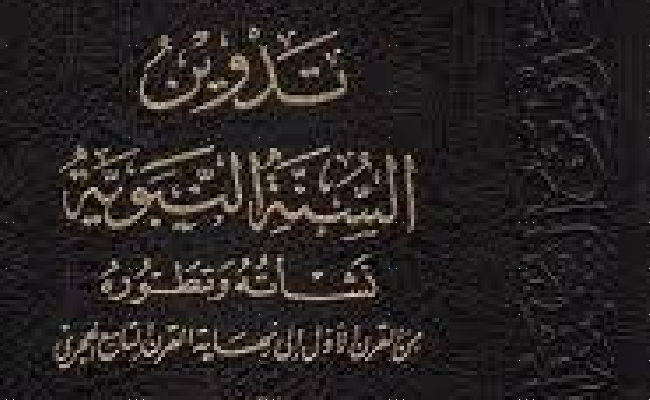 تَدْوِين
السُّنَّةِ النَّبَوِيَّةِ
نَشْأَتُهُ وَتَطَوُّرُهُ
مِنَ القرن الأوّل إلى نهاية القرن التاسع الهجري